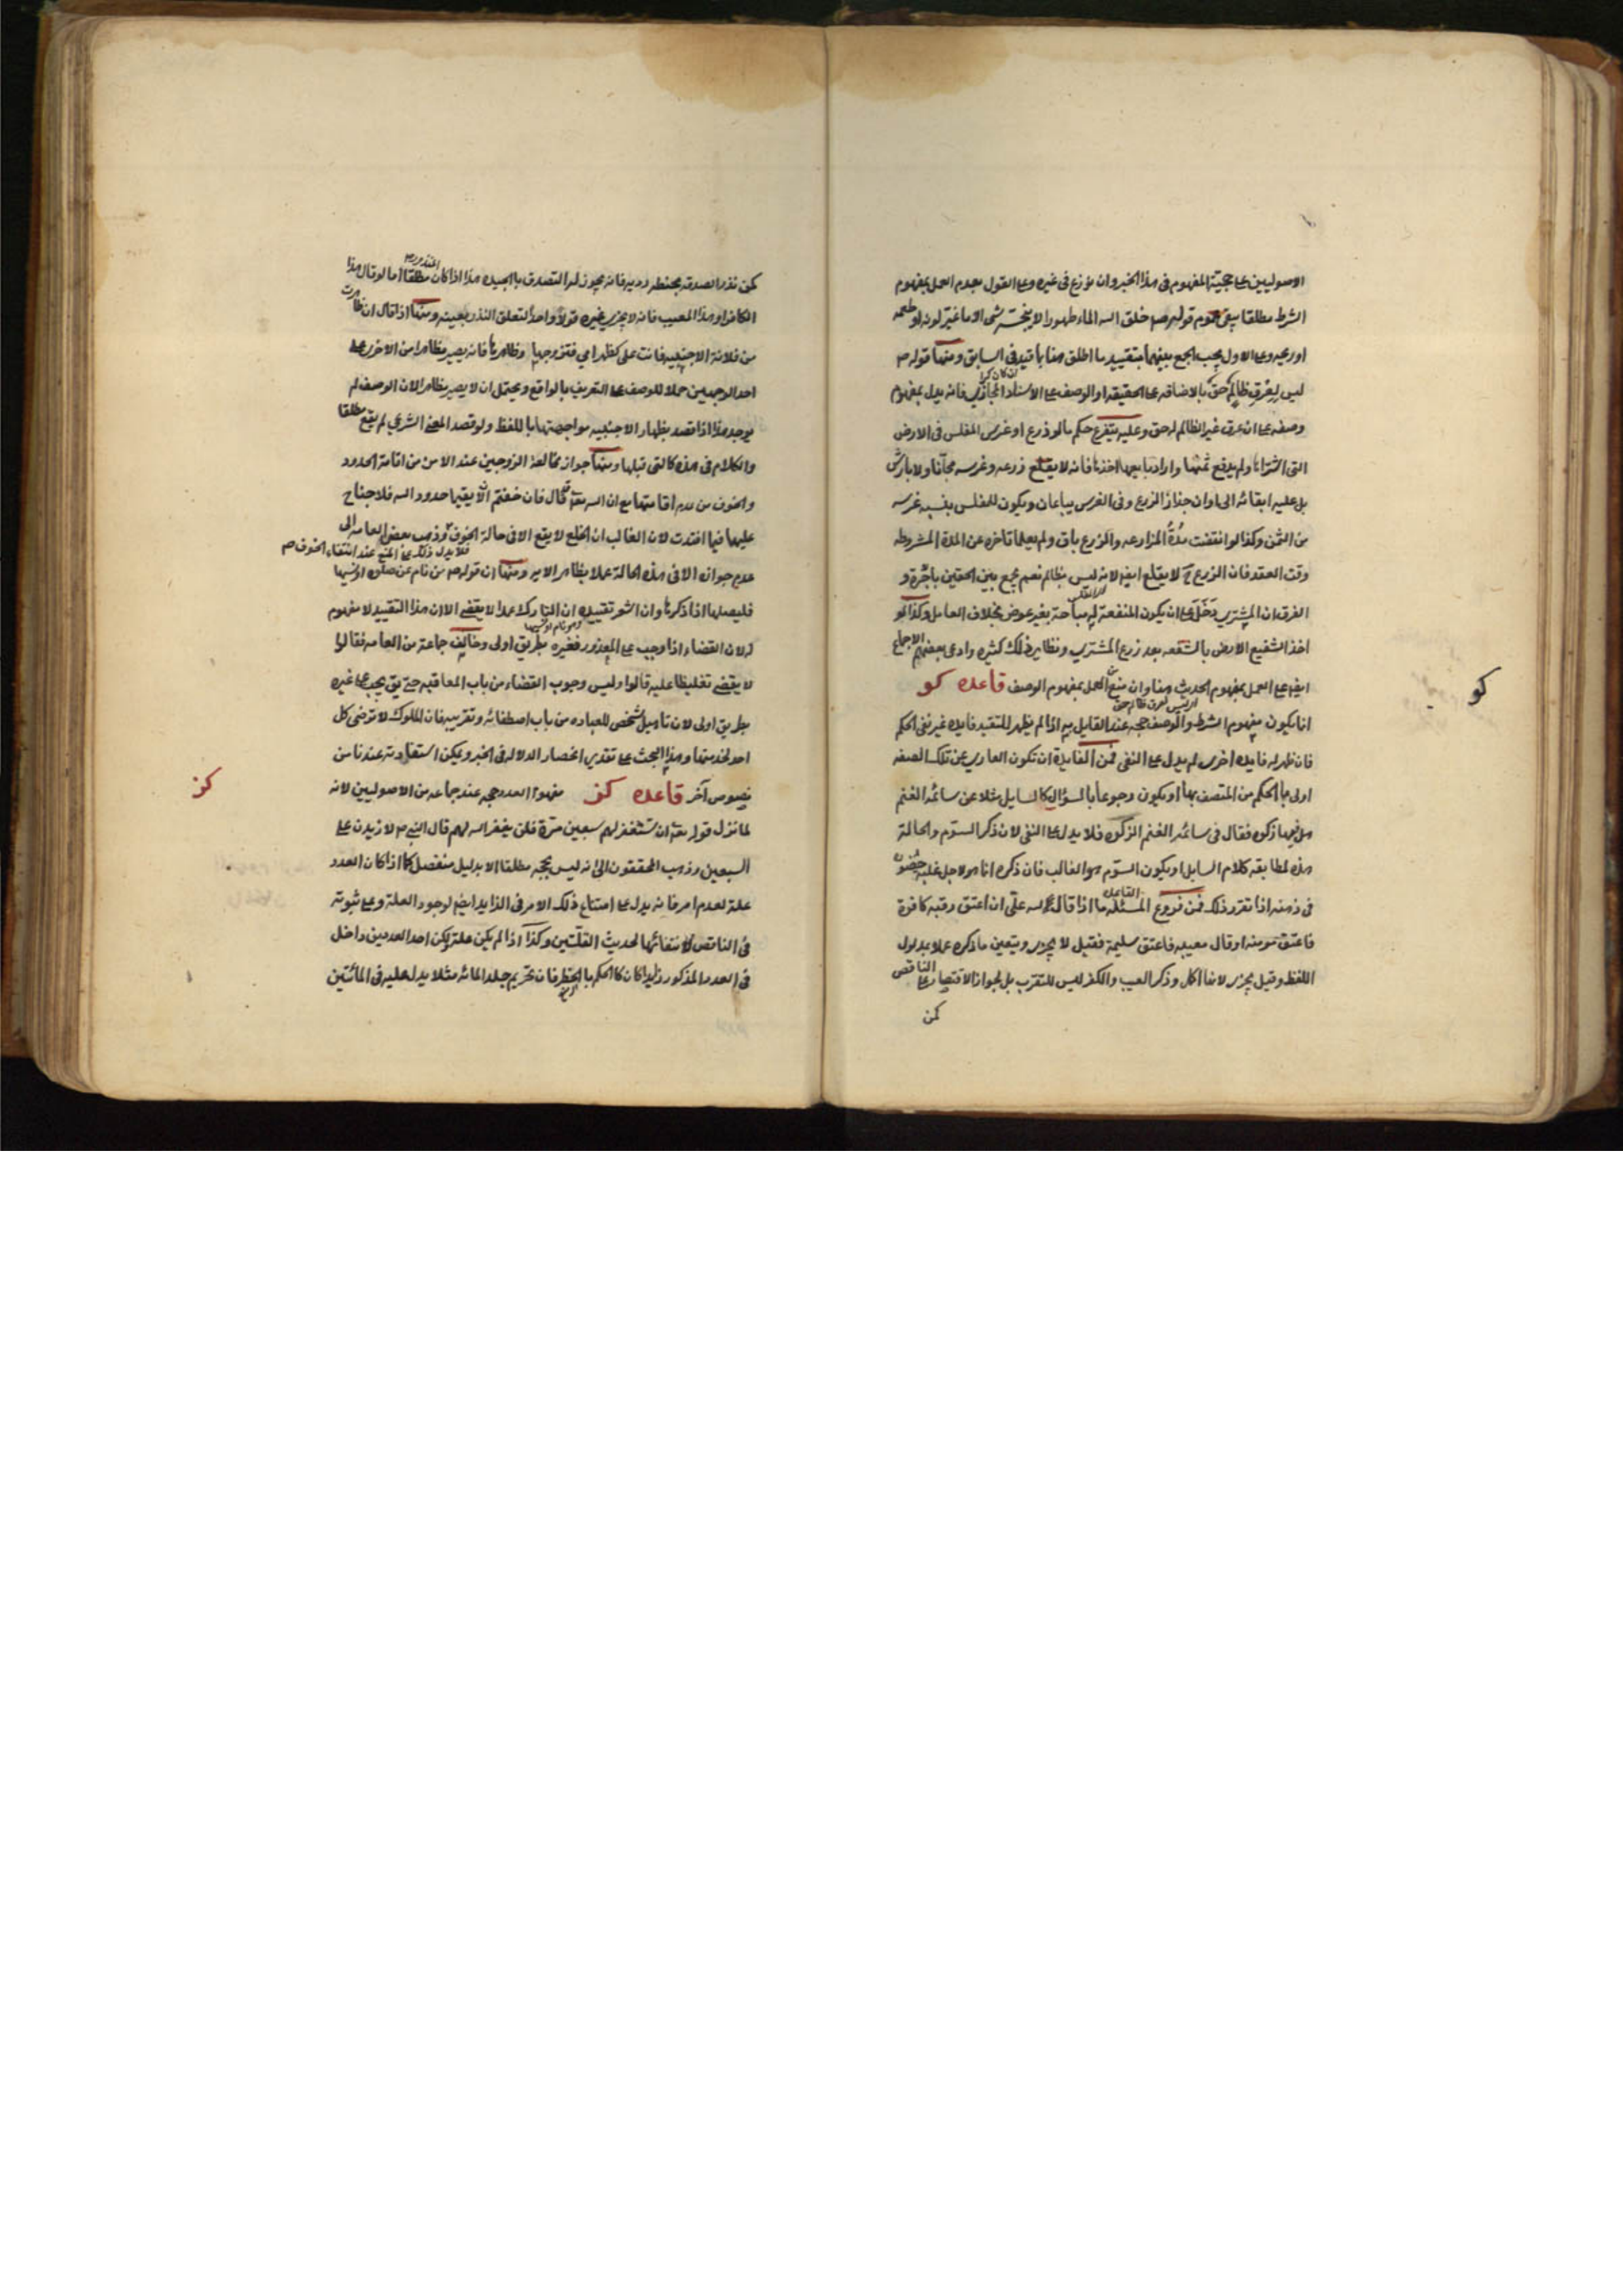 الاصوليين على حجية المفهوم في هذا الخبر وان نوزع في غيره وعلى القول بعدم العمل بمفهوم
الشرط مطلقا يبقى عموم قوله ص خلق الله الماء طهورا لا ينجسه شى الا ما غير لونه او طعمه
او ريحه وعلى الاول يجب الجمع بينهما بتقييد ما اطلق هنا بما قيد في السابق ومنها قوله ص
ليس لعرق ظالم حق بالاضافه على الحقيقه او الوصف على الاسناد المجازي فانه يدل بمفهوم
وصفه على ان عرق غير الظالم له حق وعليه يتفرع حكم ما لو زرع او غرس المفلس في الارض
التى اشتراها ولم يدفع ثمنها واراد بايعها اخذها فانه لا يقلع زرعه وغرسه مجانا ولا بارش
بل عليه ابقائه الى اوان جذاذ الزرع وفى الغرس يباعان ويكون للمفلس بنسبه غرسه
من الثمن وكذا لو انقضت مدة المزارعه والزرع باق ولم يعلما تاخره عن المدة المشروطه
وقت العقد فان الزرع ح لا يقلع ايض لانه ليس بظالم نعم يجمع بين الحقين باجرة و
الفرق ان المشتري دخل على ان يكون المنفعة له مباحة بغير عوض بخلاف العامل وكذا لو
اخذ الشفيع الارض بالشفعه بعد زرع المشتري ونظاير ذلك كثيره وادعى بعضهم الاجماع
ايض على العمل بمفهوم الحديث هنا وان منع من العمل بمفهوم الوصف قاعده كو
كو
انما يكون مفهوم الشرط والوصف حجه عند القايل به اذا لم يظهر للتقييد فايده غير نفى الحكم
فان ظهر له فايده اخرى لم يدل على النفى فمن الفايدة ان تكون العاري عن تلك الصفه
اولى بالحكم من المتصف بها او يكون وجوعا بالسؤال كالسايل مثلا عن سائمه الغنم
هل فيها زكوه فقال في سائمه الغنم الزكوه فلا يدل على النفى لان ذكر السوم والحالة
هذه لمطابقه كلام السايل او يكون السوم هو الغالب فان ذكره انما هو لاجل غلبه حضوره
في ذهنه اذا تقرر ذلك فمن فروع المسئله ما اذا قال لله على ان اعتق رقبه كافرة
فاعتق مومنه او قال معيبه فاعتق سليمة فقيل لا يجزى ويتعين ما ذكره عملا بمدلول
اللفظ وقيل يجزى لانها اكمل وذكر العيب والكفر ليس للتقرب بل لجواز الاقتصار على الناقص
كمن
كمن نذر الصدقه بحنطه رديه فانه يجوز له التصدق بالجيده هذا اذا كان المنذور مطلقا اما لو قال هذا
الكافر او هذا المعيب فانه لا يجزى غيره قولا واحدا لتعلق النذر بعينه ومنها اذا قال ان ظاهرت
من فلانة الاجنبيه فانت على كظهر امي فتزوجها وظاهرها فانه يصير مظاهرا من الاخرى على
احد الوجهين حملا للوصف على التعريف بالواقع ويحتمل ان لا يصير مظاهرا لان الوصف لم
يوجد هذا اذا قصد بظهار الاجنبيه مواجهتها باللفظ ولو قصد المعنى الشرعي لم يقع مطلقا
والكلام في هذه كالتى قبلها ومنها جواز مخالعة الزوجين عند الامن من اقامة الحدود
والخوف من عدم اقامتها مع ان الله تعالى قال فان خفتم الا يقيما حدود الله فلا جناح
عليهما فيما افتدت لان الغالب ان الخلع لا يقع الا في حالة الخوف وذهب بعض العامه الى
فلا يدل ذلك على المنع عند انتفاء الخوف ص
عدم جوازه الا في هذه الحالة عملا بظاهر الايه ومنها ان قوله ص من نام عن صلوه او نسيها
فليصلها اذا ذكرها وان اشعر تقييده ان التارك عمدا لا يقضى الا ان هذا التقييد لا مفهوم
له لان القضاء اذا وجب على المعذور فغيره بطريق اولى وخالف جماعة من العامه فقالوا
لا يقضى تغليظا عليه قالوا وليس وجوب القضاء من باب المعاقبه حتى يق يجب على غيره
بطريق اولى لان تاهيل الشخص للعباده من باب اصطفائه وتقريبه فان الملوك لا ترضى كل
احد لخدمتها وهذا البحث على تقدير انحصار الدلاله في الخبر ويمكن استفادته عندنا من
نصوص اخر قاعده كز مفهوم العدد حجه عند جماعه من الاصوليين لانه
كز
لما نزل قوله تعالى ان تستغفر لهم سبعين مرة فلن يغفر الله لهم قال النبى ص لازيدن على
السبعين وذهب المحققون الى انه ليس بحجه مطلقا الا بدليل منفصل كما اذا كان العدد
علة لعدم امر فانه يدل على امتناع ذلك الامر في الزايد ايض لوجود العلة وعلى ثبوته
في الناقص لانتفائها لحديث القلتين وكذا اذا لم يكن علة لكن احد العددين داخل
في العدد المذكور زايدا كان كالحكم بالحظر فان تحريم جلد المائه مثلا يدل عليه في المائتين